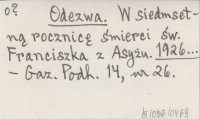 o?
Odezwa. W siedmset-
ną rocznicę śmierci św.
Franciszka z Asyżu. 1926...
– Gaz. Podh. 14, nr 26.